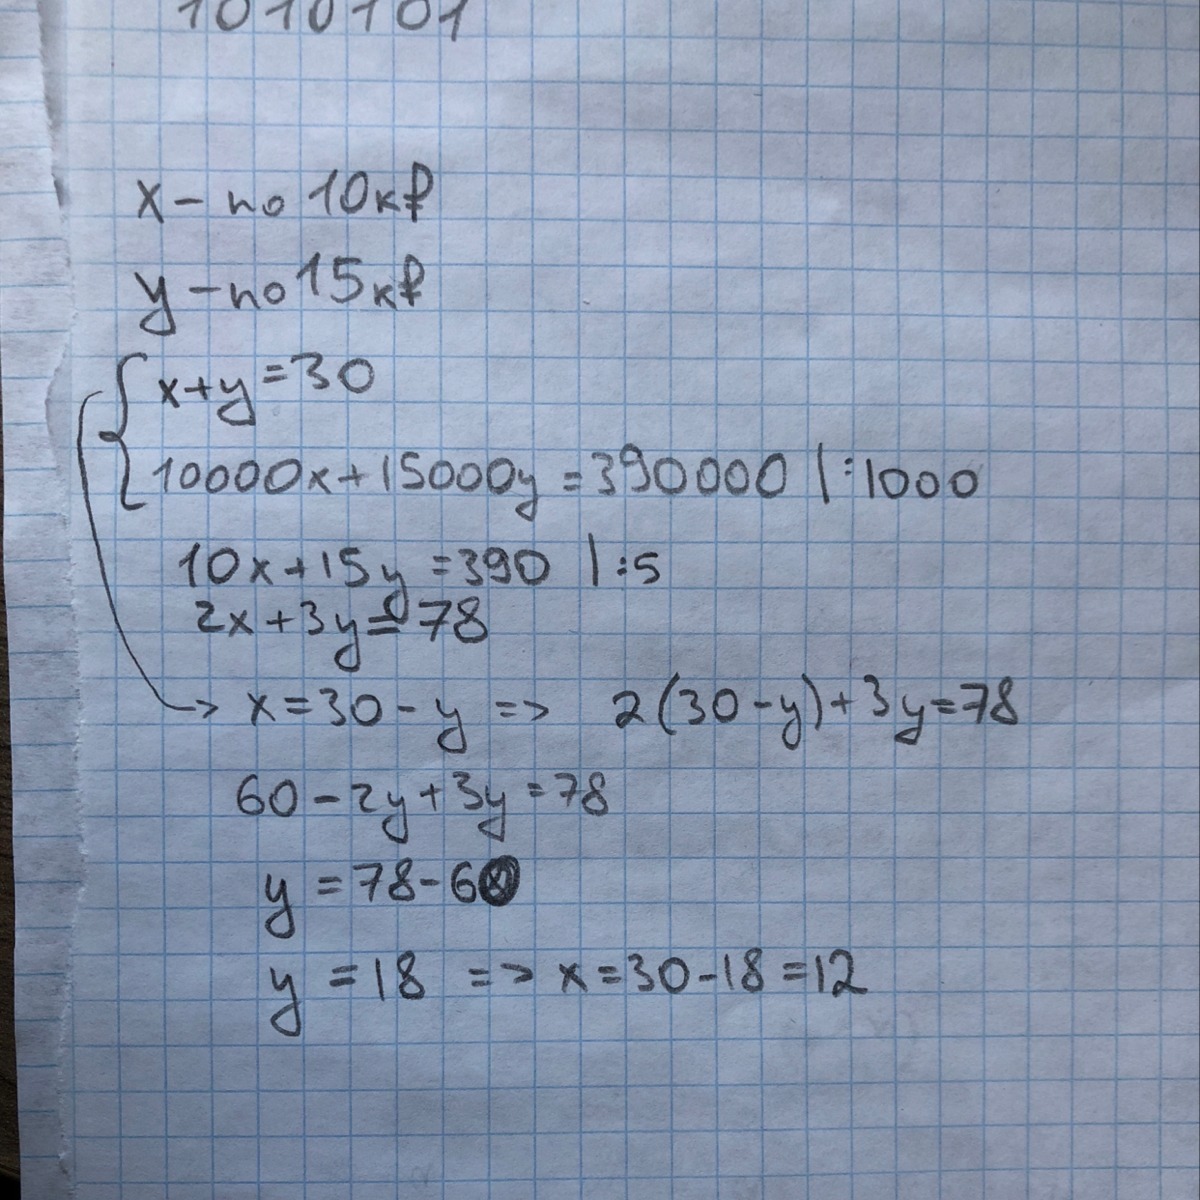 1010101
x - по 10к₽
y - по 15к₽
x+y=30
10000x+15000y=390000 |:1000
10x+15y=390 |:5
2x+3y=78
x=30-y => 2(30-y)+3y=78
60-2y+3y=78
y=78-60
y=18 => x=30-18=12